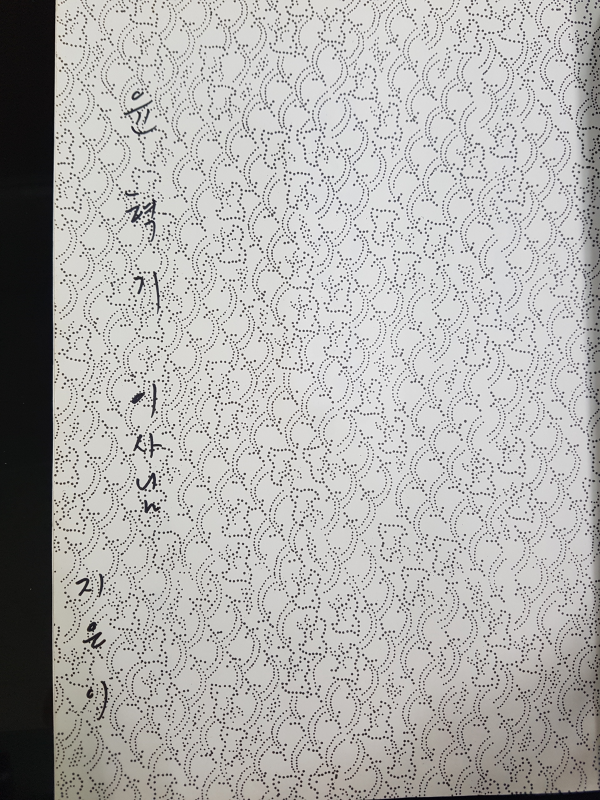 윤혁기 이사님
지은이